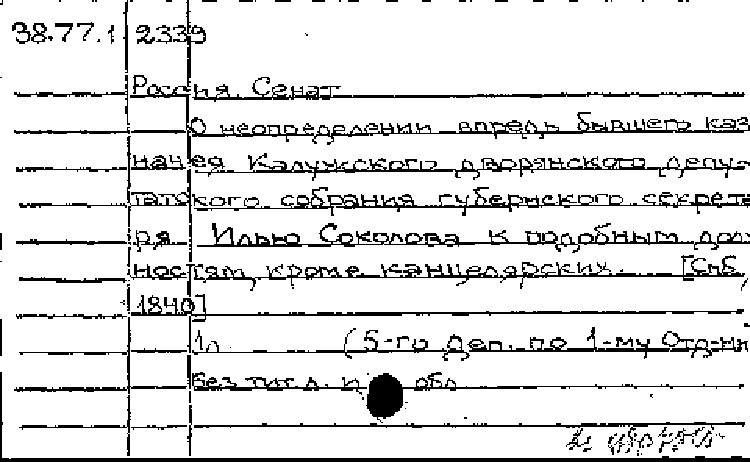 38.77.1 2339
Россия. Сенат
О неопределении впредь бывшего каз
начея Калужского дворянского депу-
татского собрания губернского секрета
ря Илью Соколова к подобным долж
ностям, кроме канцелярских. [Спб,
1840]
1л (5-го Деп. по 1-му Отд-ни
Без тит. л. и обл